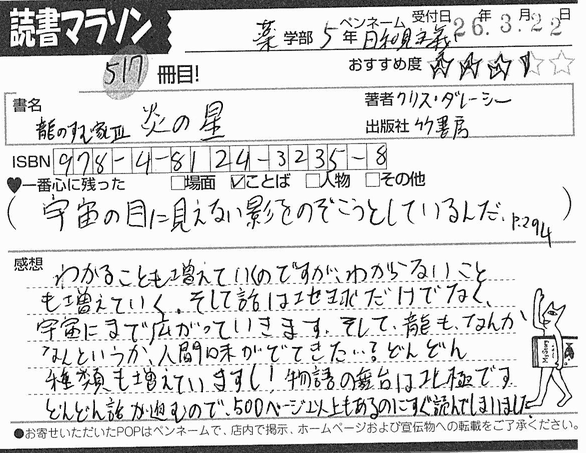 読書マラソン
薬 学部 5年 ペンネーム 日和見主義 受付日 26年3月22日
517 冊目!
おすすめ度
書名
龍のすむ家Ⅲ 炎の星
著者 クリス・ダレーシー
出版社 竹書房
ISBN 978-4-8124-3235-8
♥一番心に残った □場面 ☑ことば □人物 □その他
(宇宙の目に見えない影をのぞこうとしているんだ。P.294)
感想
わかることも増えていくのですが、わからないこと
も増えていく。そして話は地球だけでなく、
宇宙にまで広がっていきます。そして、龍も、なんか
なんというか、人間味がでてきたいる。どんどん
種類も増えていますし!物語の舞台は北極です
どんどん話が進むので、500ページ以上もあるのにすぐ読んでしまいました
●お寄せいただいたPOPはペンネームで、店内で掲示、ホームページおよび宣伝物への転載をご了承ください。